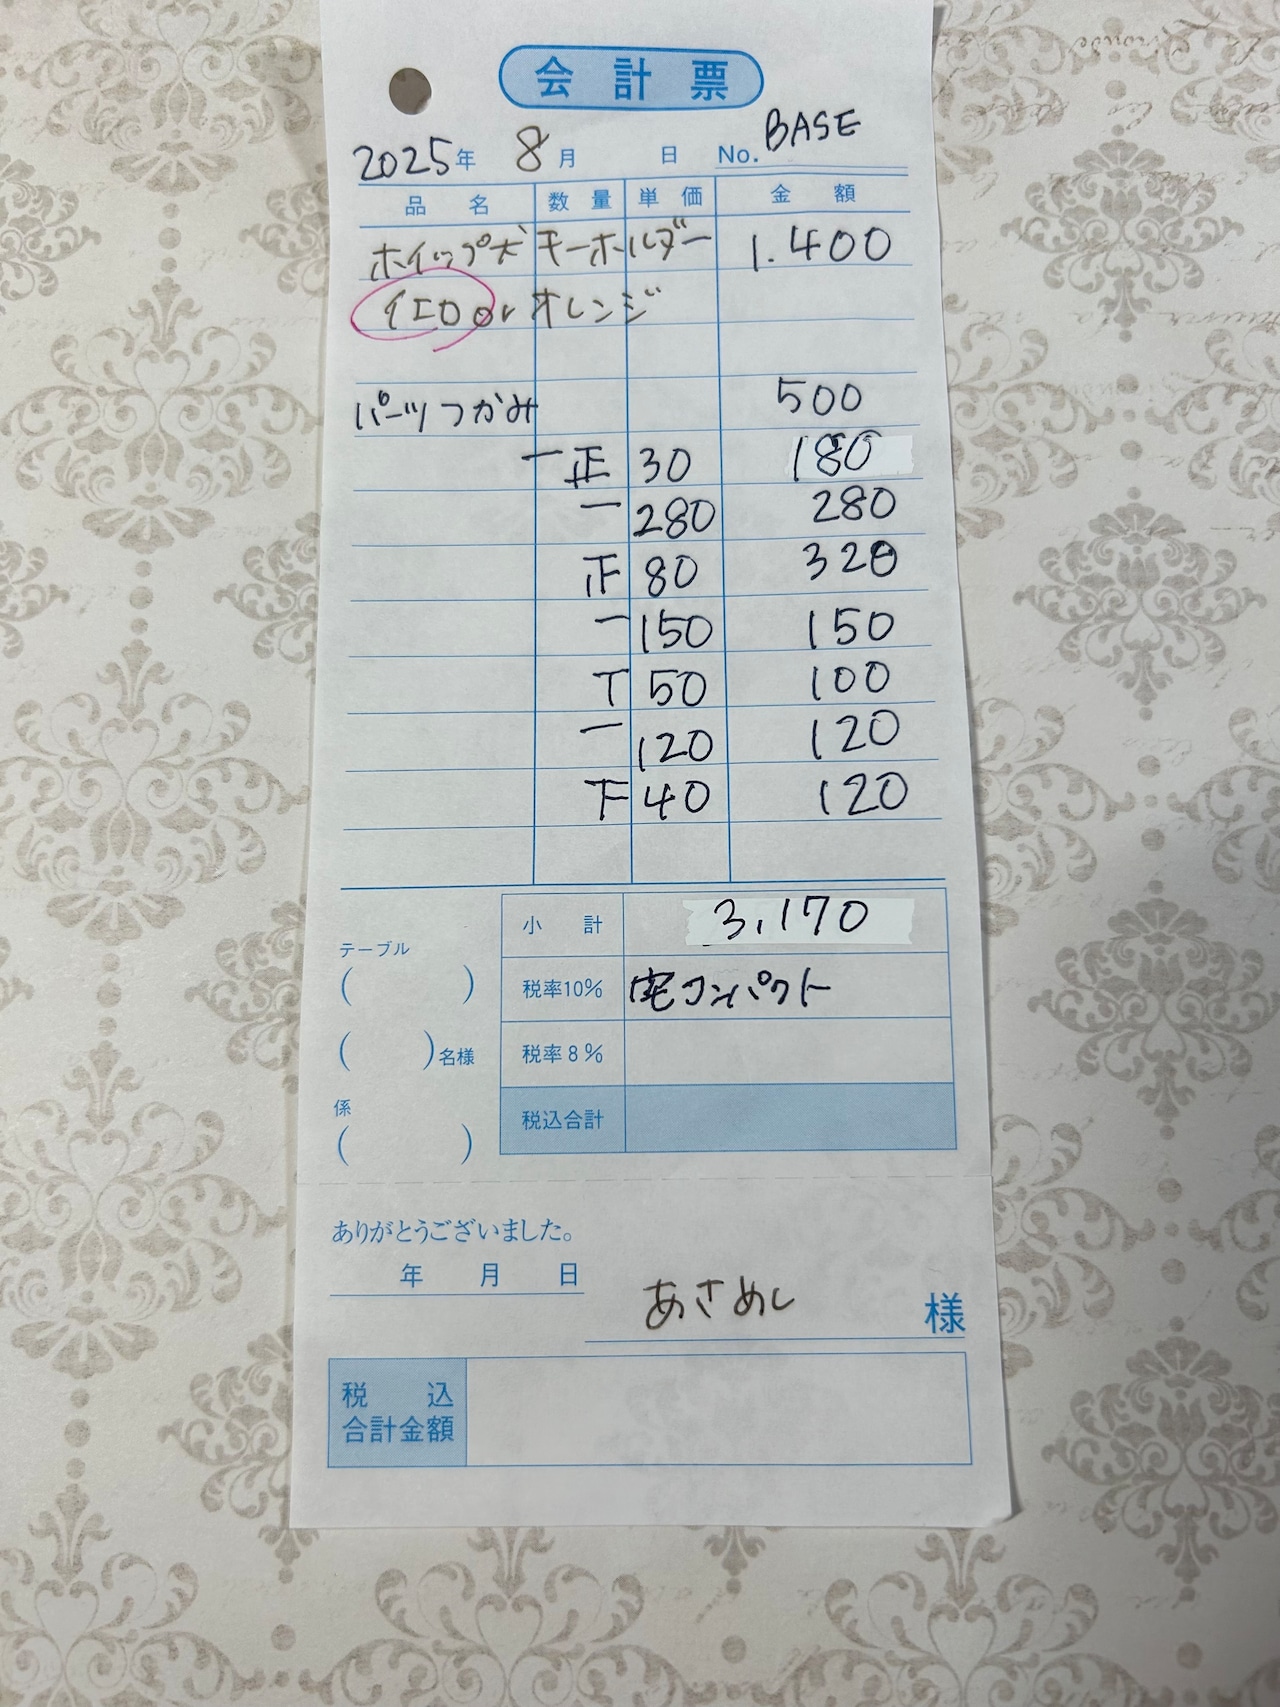 会計票
2025年 8月 日 No. BASE
品名 数量 単価 金額
ホイップ犬 キーホルダー 1.400
イエロ or オレンジ
パーツつかみ 500
一正 30 180
一 280 280
正 80 320
一 150 150
T 50 100
一 120 120
下 40 120
小計 3,170
テーブル
( ) 税率10% 宅コンパクト
( )名様 税率8%
係
( ) 税込合計
ありがとうございました。
年 月 日
あさめし 様
税込
合計金額